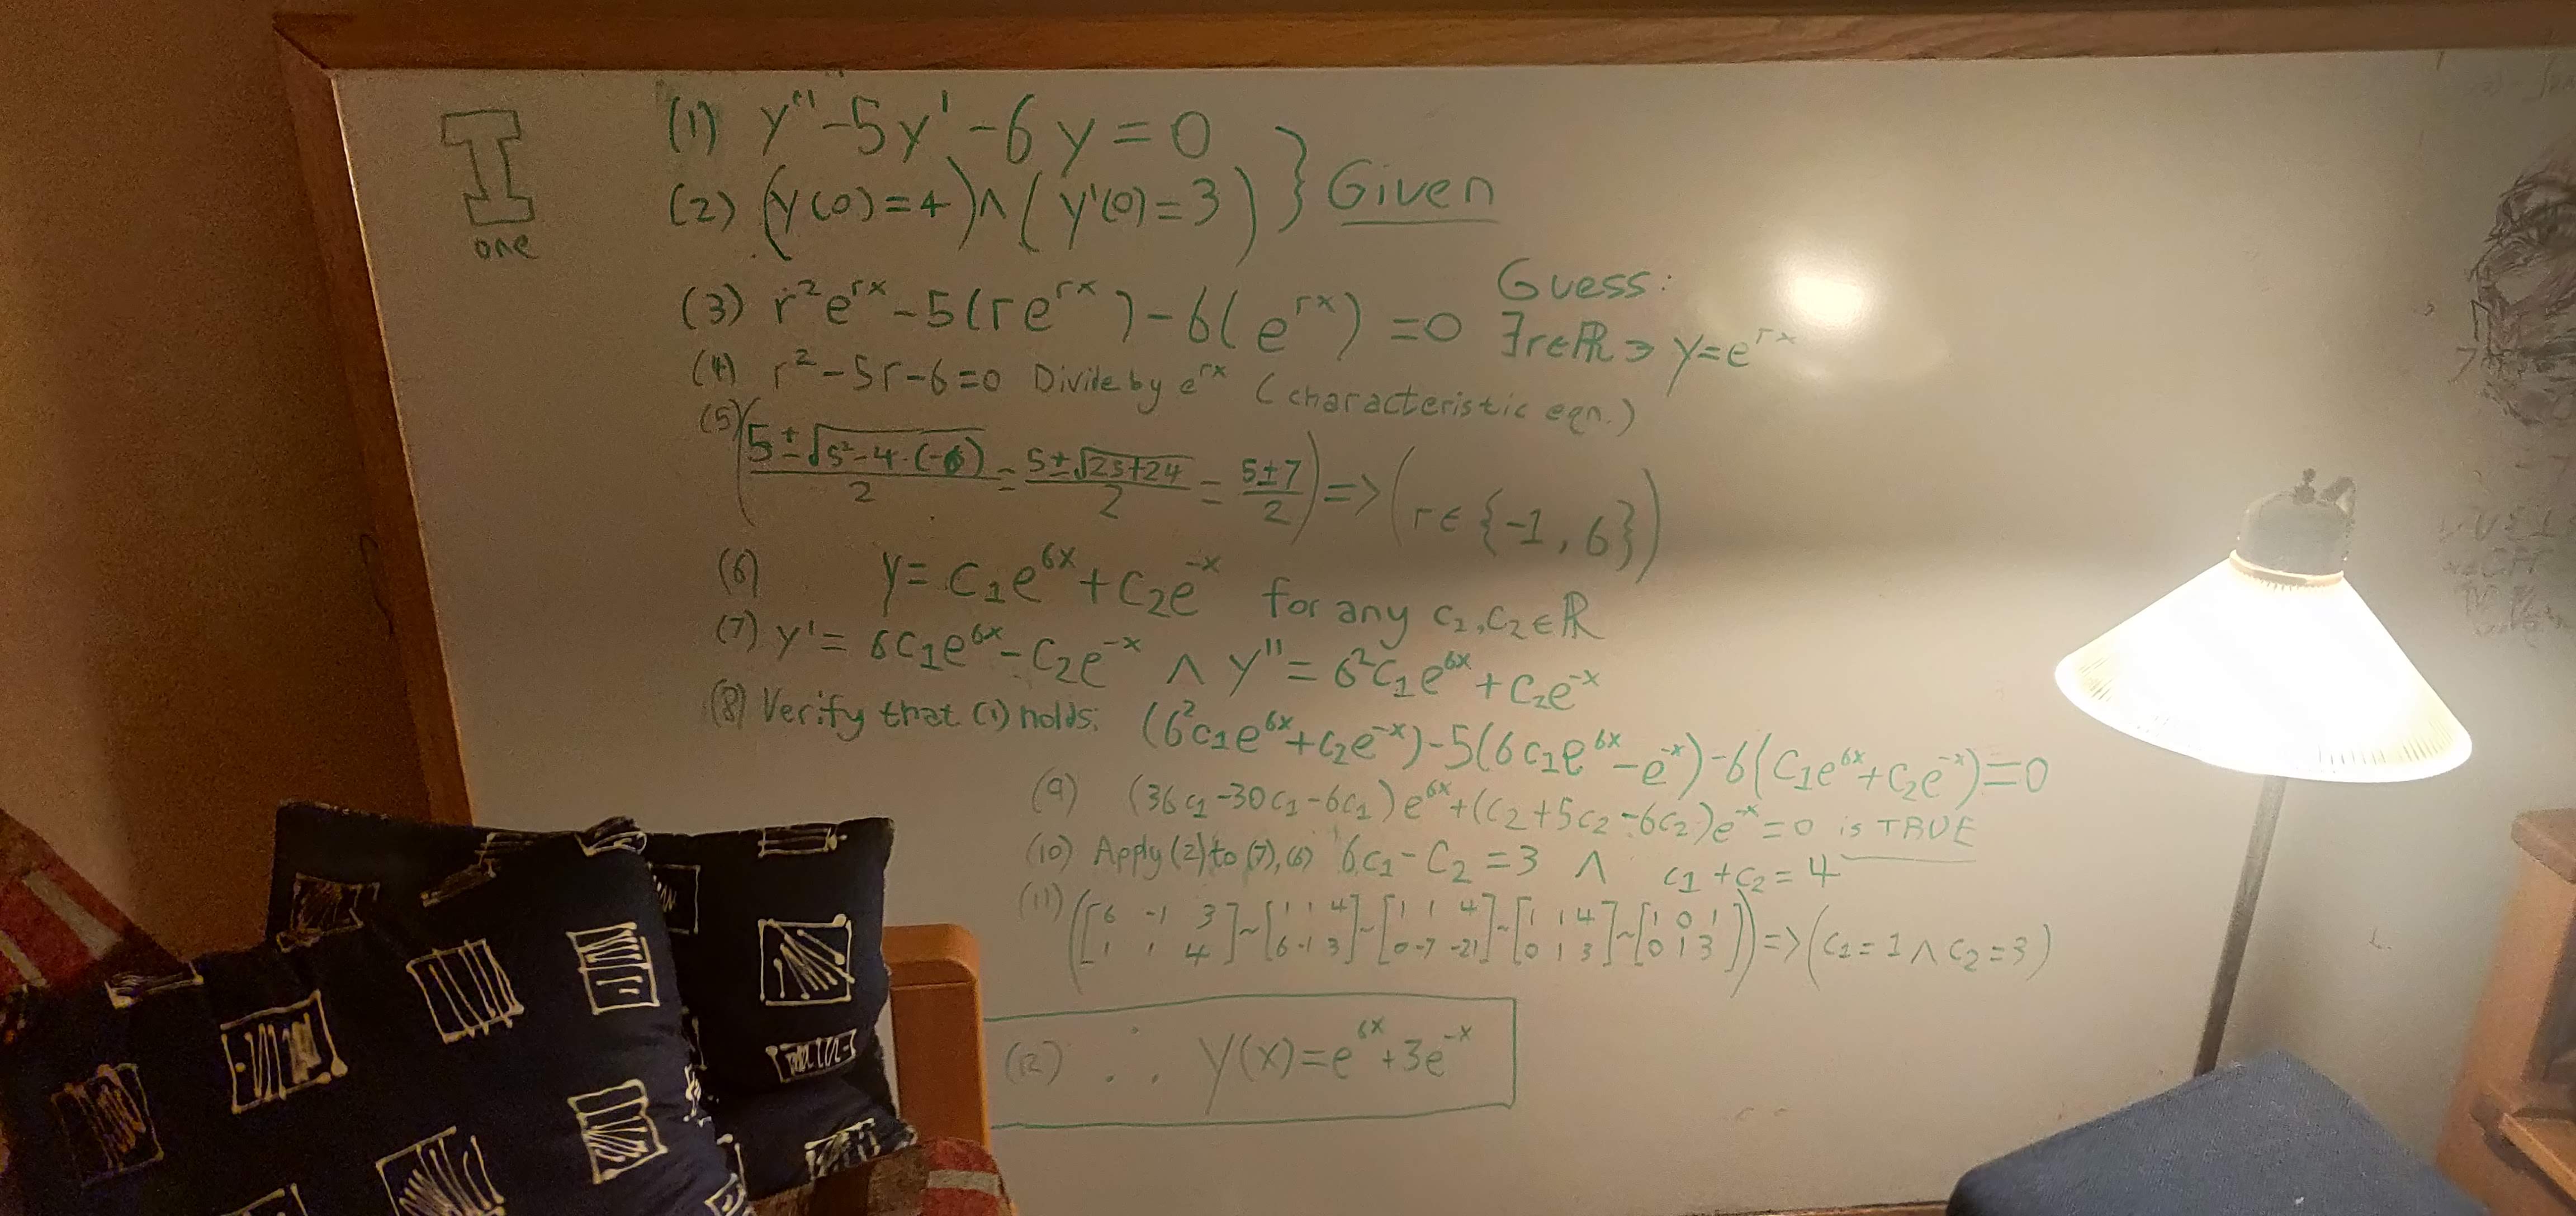 I
one
(1) y''-5y'-6y=0
(2) (y(0)=4)∧(y'(0)=3) } Given
Guess:
(3) r²e^(rx)-5(re^(rx))-6(e^(rx))=0 ∃r∈ℝ∋y=e^(rx)
(4) r²-5r-6=0 Divide by e^(rx) (characteristic eqn.)
(5) ((5±√(5²-4·(-6)))/2=(5±√(25+24))/2=(5±7)/2)=>(r∈{-1,6})
(6) y=c₁e^(6x)+c₂e^(-x) for any c₁,c₂∈ℝ
(7) y'=6c₁e^(6x)-c₂e^(-x) ∧ y''=6²c₁e^(6x)+c₂e^(-x)
(8) Verify that (1) holds: (6²c₁e^(6x)+c₂e^(-x))-5(6c₁e^(6x)-e^(-x))-6(c₁e^(6x)+c₂e^(-x))=0
(9) (36c₁-30c₁-6c₁)e^(6x)+(c₂+5c₂-6c₂)e^(-x)=0 is TRUE
(10) Apply (2) to (7),(6) 6c₁-c₂=3 ∧ c₁+c₂=4
(11) ([6 -1 3; 1 1 4]~[1 1 4; 6 -1 3]~[1 1 4; 0 -7 -21]~[1 1 4; 0 1 3]~[1 0 1; 0 1 3])=>(c₁=1∧c₂=3)
(12) ∴ y(x)=e^(6x)+3e^(-x)